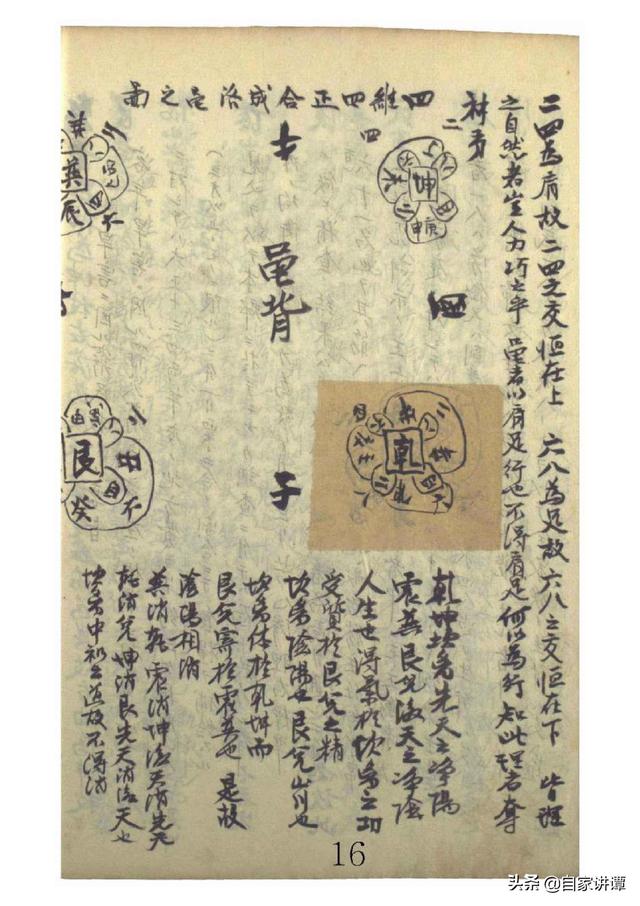 二四為肩故二四之交恒在上 六八為足故六八之交恒在下 皆理
之自然者豈人力巧之乎 龜者以肩足行也不得肩足何以為行知此理者奪
四維四正合成洛龜之圖
坤
庚
申
四
乾
龜背
子
巽
辰
艮
癸
乾坤坎离先天之净陽
震巽艮兌後天之净陰
人生也得氣於坎离之功
受質於艮兌之精
坎离陰陽也艮兌山川也
坎离体於乾坤而
艮兌寄於震巽也 是故
陰陽相消
巽消乾 震消坤後天消先天
乾消兌 坤消艮先天消後天也
坎离中 之道故不得消
16
头条 @自家讲谭